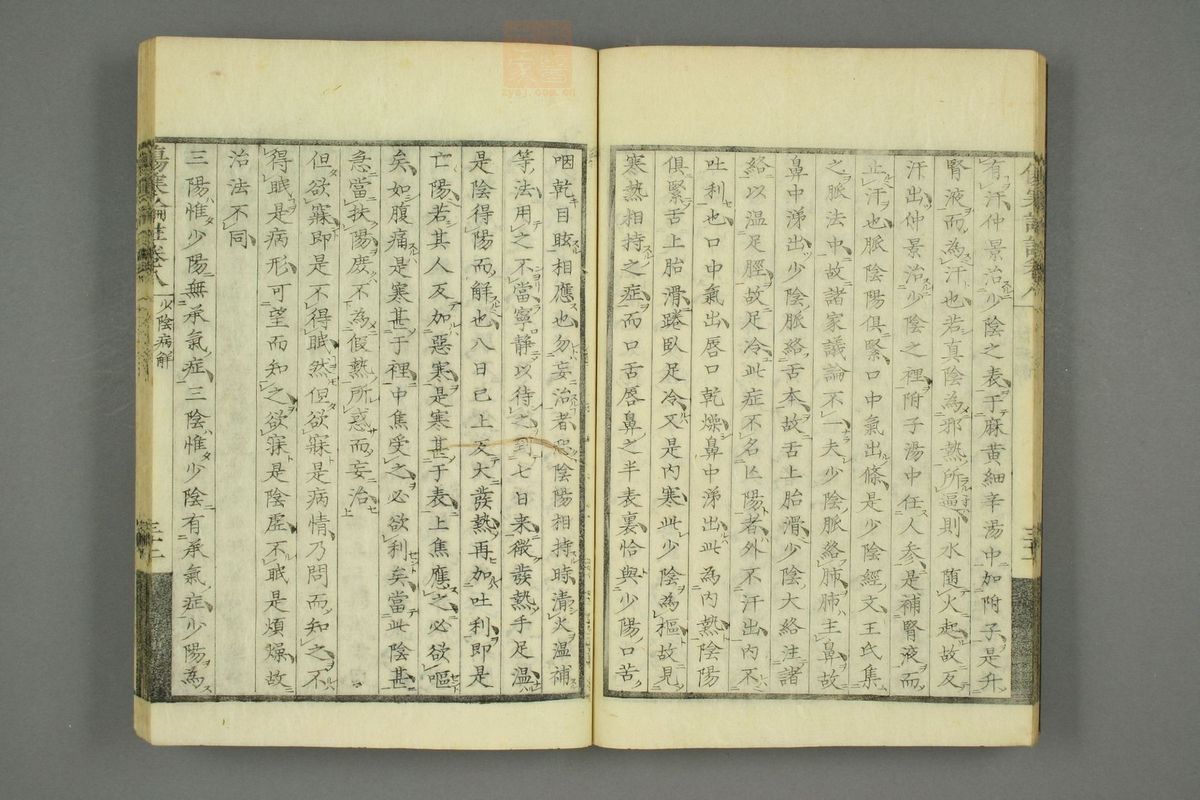 有汗仲景治少陰之表于麻黄細辛湯中加附子是升
腎液而為汗也若真陰為邪熱所逼則水隨火起故反
汗出仲景治少陰之裡附子湯中任人參是補腎液而
止汗也脈陰陽俱緊口中氣出條是少陰經文王氏集
之脈法中故諸家議論不一夫少陰脈絡肺肺主鼻故
鼻中涕出少陰脈絡舌本故舌上胎滑少陰大絡注諸
絡以温足脛故足冷此症不名亡陽者外不汗出内不
吐利也口中氣出唇口乾燥鼻中涕出此為内熱陰陽
俱緊舌上胎滑踡臥足冷又是内寒此少陰為樞故見
寒熱相持之症而口舌唇鼻之半表裏恰與少陽口苦
咽乾目眩相應也勿妄治者恐陰陽相持時清火温補
等法用之不當寧靜以待之到七日来微發熱手足温
是陰得陽而解也八日已上反大發熱再加吐利即是
亡陽若其人反加惡寒是寒甚于表上焦應之必欲嘔
矣如腹痛是寒甚于裡中焦受之必欲利矣當此陰甚
急當扶陽庻不為假熱所惑而妄治
但欲寐即是不得眠然但欲寐是病情乃問而知之不
得眠是病形可望而知之欲寐是陰虚不眠是煩燥故
治法不同
三陽惟少陽無承氣症三陰惟少陰有承氣症少陽為
傷寒論註卷八
少陰病解
三十二
zysj.com.cn